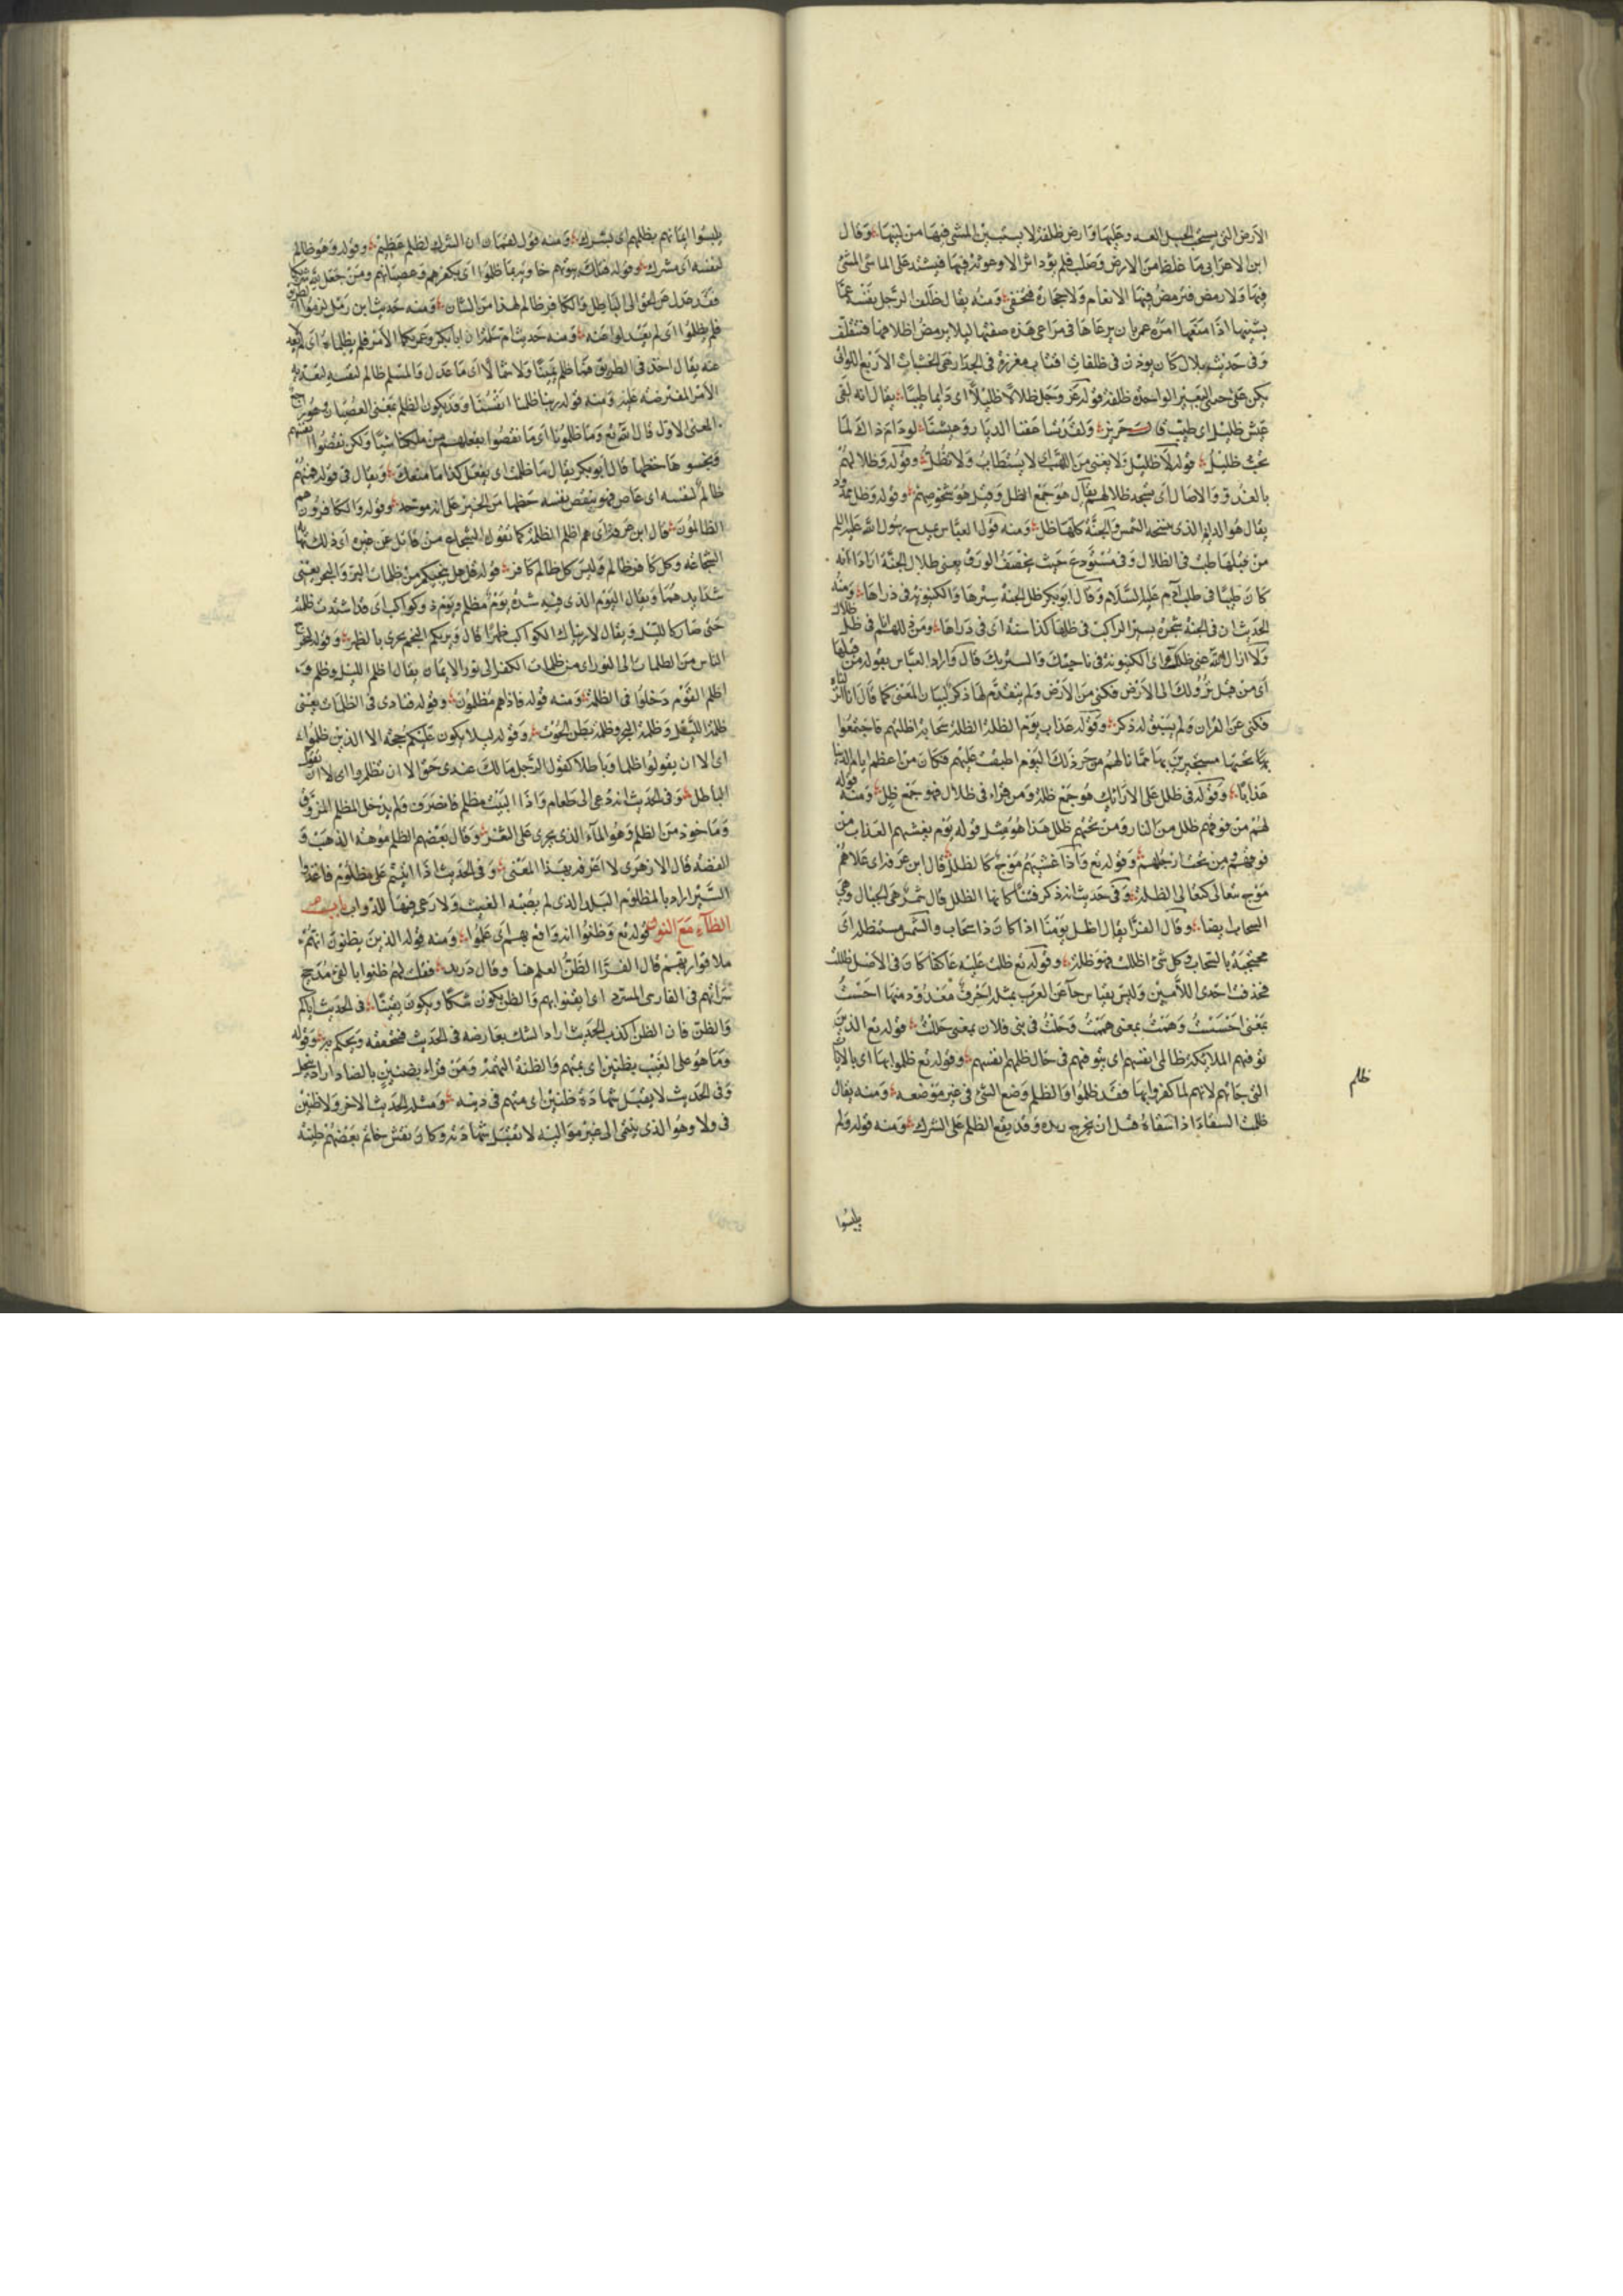 ابن الاعرابي ما غلظ من الارض وصلب فلم يؤد اثرا
فيها ولا رمض فترمض فيها الانعام ولا حجارة فتحفى ومنه يقال ظلف الرجل نفسه عما
يشينها اذا منعها امر عمر بان يرعاها في مراعي هذه صفتها ليلا يرمض اظلافها فتتلف
وفي حديث بلال كان يوذن في ظلفات اقتاب مغرزة في الجدار هي الخشبات الاربع اللواتي
يكن على جنبي البعير الواحدة ظلفة قوله عز وجل ظلا ظليلا اي دايما طيبا يقال انه لفي
عيش ظليل اي طيب قال جرير ولقد تساعفنا الديار وعيشنا لو دام ذاك لما
نحب ظليل قوله لا ظليل ولا يغني من اللهب اي لا يستطاب ولا تظل وقوله وظلالهم
بالغدو والاصال اي تسجد ظلالهم يقال هو جمع الظل وقيل هو شخوصهم وقوله وظل ممدود
يقال هو الدايم الذي لا تنسخه الشمس والجنة كلها ظل ومنه قول العباس يمدح رسول الله عليه السلم
من قبلها طبت في الظلال وفي مستودع حيث يخصف الورق يعني ظلال الجنة اراد انه
كان طيبا في صلب آدم عليه السلام وقال ابو بكر ظل الجنة سترها والكينونة في ذراها ومنه
الحديث ان في الجنة شجرة يسير الراكب في ظلها كذا سنة اي في ذراها ومن اللهم في ظلال
ولا ازال الله عني ظلك اي الكينونة في ناحيتك والستر بك قال واراد العباس بقوله من قبلها
اي من قبل نزولك الى الارض فكنى عن الارض ولم يتقدم لها ذكر لبيان المعنى كما قال انا انزلناه
فكنى عن القران ولم يسبق له ذكر وقوله عذاب يوم الظلة الظلة سحابة اظلتهم فاجتمعوا
تحتها مستجيرين بها مما نالهم من حر ذلك اليوم اطبقت عليهم فكان من اعظم ايام الدنيا
عذابا وقوله في ظلل على الارائك هو جمع ظلة ومن قراء في ظلال فهو جمع ظل ومنه قوله
لهم من فوقهم ظلل من النار ومن تحتهم ظلل هذا هو مثل قوله يوم يغشيهم العذاب من
فوقهم ومن تحت ارجلهم وقوله تع واذا غشيهم موج كالظلل قال ابن عرفة اي علاهم
موج تعالى كتعالي الظلل وفي حديث انه ذكر فتنا كانها الظلل قال شمر هي الجبال وهي
السحاب ايضا وقال الفرا يقال اظل يومنا اذا كان ذا سحاب والشمس مستظلة اي
محتجبة بالسحاب وكل شئ اظلك فهو ظلة وقوله تع ظلت عليه عاكفا كان في الاصل ظللت
فحذفت احدى اللامين وليس بقياس جاء عن العرب بمثله احرف معدودة منها احست
بمعنى احسست وهمت بمعنى هممت وحلت في بني فلان بمعنى حللت قوله تع الذين
توفيهم الملايكة ظالمي انفسهم اي يتوفيهم في حال ظلمهم انفسهم وقوله تع ظلموا بها اي بالايات
التي جاتهم لانهم لما كفروا بها فقد ظلموا والظلم وضع الشئ في غير موضعه ومنه يقال
ظلمت السقاء اذا سقاه قبل ان يخرج زبده وقد يقع الظلم على الشرك ومنه قوله ولم
ظلم
يلبسوا
يلبسوا ايمانهم بظلم اي بشرك ومنه قول لقمان ان الشرك لظلم عظيم وقوله وهو ظالم
لنفسه اي مشرك وقوله فتلك بيوتهم خاوية بما ظلموا اي بكفرهم وعصيانهم ومن جعل لله شريكا
فقد عدل عن الحق الى الباطل والكافر ظالم لهذا من الشان ومنه حديث ابن زمل لزموا الطريق
فلم يظلموا اي لم يعدلوا عنه ومنه حديث ام سلمة ان ابا بكر وعمر ثكما الامر فلم يظلماه اي لم يعدلا
عنه يقال اخذ في الطريق فما ظلم يمينا ولا شمالا اي ما عدل والمسلم ظالم لنفسه لتعديه
الامر المفترض عليه ومنه قوله ربنا ظلمنا انفسنا وقد يكون الظلم بمعنى النقصان وهو راجع
المعنى الاول قال تع وما ظلمونا اي ما نقصوا بفعلهم من ملكنا شيا ولكن نقصوا انفسهم
وبخسوها حظها قال ابو بكر يقال ما ظلمك ان تفعل كذا ما منعك ويقال في قوله فمنهم
ظالم لنفسه اي عاص فهو ينقص نفسه حظها من الخير على انه موحد وقوله والكافرون هم
الظالمون قال ابن عرفة اي هم اظلم الظلمة كما تقول الشجاع من قاتل عن غيره اي ذلك نهاية
الشجاعة وكل كافر ظالم وليس كل ظالم كافر قوله قل من ينجيكم من ظلمات البر والبحر يعني
شدايدهما ويقال لليوم الذي فيه شدة يوم مظلم ويوم ذو كواكب اي قد اشتدت ظلمته
حتى صار كالليل ويقال لارينك الكواكب ظهرا قال ويريكم النجم يجري بالظهر وقوله ليخرج
الناس من الظلمات الى النور اي من ظلمات الكفر الى نور الايمان يقال اظلم الليل وظلم
اظلم القوم دخلوا في الظلمة ومنه قوله فاذا هم مظلمون وقوله فنادى في الظلمات يعني
ظلمة الليل وظلمة البحر وظلمة بطن الحوت وقوله ليلا يكون عليكم حجة الا الذين ظلموا
اي الا ان يقولوا ظلما وباطلا كقول الرجل ما لك عندي حق الا ان تظلم اي الا ان تقول
الباطل وفي الحديث انه دعي الى طعام واذا البيت مظلم فانصرف ولم يدخل المظلم المزوق
وماخوذ من الظلم وهو الماء الذي يجري على الثغر وقال بعضهم الظلم موهة الذهب و
الفضة قال الازهري لا اعرفه بهذا المعنى وفي الحديث اذا اتيتم على مظلوم فاغذوا
السير اراد بالمظلوم البلد الذي لم يصبه الغيث ولا رعي فيها للدواب باب
الظآء مع النون قوله تع وظنوا انه واقع بهم اي علموا ومنه قوله الذين يظنون انهم
ملاقوا ربهم قال الفرا الظن العلم هنا وقال دريد فقلت لهم ظنوا بالفي مدجج
سراتهم في الفارسي المسرد اي ايقنوا بهم والظن يكون شكا ويكون يقينا في الحديث اياكم
والظن فان الظن اكذب الحديث اراد الشك يعارضه في الحديث فتحققه وتحكم به وقوله
وما هو على الغيب بظنين اي بمتهم والظنة التهمة ومن قراء بضنين بالضاد اراد ببخيل
وفي الحديث لا يقبل شهادة ظنين اي متهم في دينه ومثله الحديث الاخر ولا ظنين
في ولاء وهو الذي ينتمي الى غير مواليه لا تقبل شهادته وكان نقش خاتم بعضهم طينة